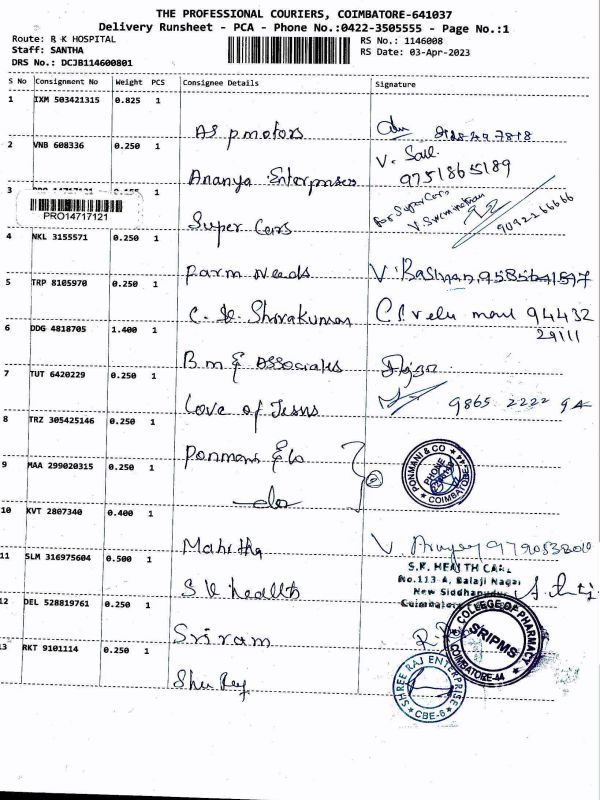 THE PROFESSIONAL COURIERS, COIMBATORE-641037
Delivery Runsheet - PCA - Phone No.:0422-3505555 - Page No.:1
Route: R K HOSPITAL
Staff: SANTHA
DRS No.: DCJB114600801
RS No.: 1146008
RS Date: 03-Apr-2023
S No Consignment No Weight PCS Consignee Details Signature
1 IXM 503421315 0.825 1
As pmotors
2 VNB 608336 0.250 1
V. Sail
9751865189
Ananya Enterprises
3
PRO14717121
Super Cars
For Super Cars
V. Swaminathan
9092266666
4 NKL 3155571 0.250 1
Parm needs
5 TRP 8105970 0.250 1
C. Shivakumar
C.P. velu mani 94432
29111
6 DDG 4818705 1.400 1
B.m & Associates
7 TUT 6420229 0.250 1
Love of Jesus
9865 2222 94
8 TRZ 305425146 0.250 1
Ponmani & Co
PONMANI & CO
PHONE
COIMBATORE-44
9 MAA 299020315 0.250 1
do
10 KVT 2807340 0.400 1
Mahitha
11 SLM 316975604 0.500 1
S.K. HEALTH CARE
No.113-A, Balaji Nagar
New Siddhapudur
Coimbatore
S K health
12 DEL 528819761 0.250 1
Sriram
COLLEGE OF PHARMACY
SRIPMS
COIMBATORE-44
13 RKT 9101114 0.250 1
Shree Raj
SHREE RAJ ENTERPRISE
CBE-6